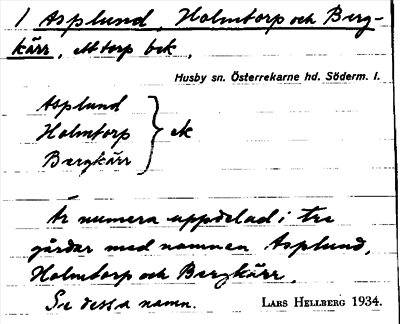 1 Asplund, Holmtorp och Berg-
kärr, ett torp bek,
Husby sn. Österrekarne hd. Söderm. l.
Asplund
Holmtorp } ek
Bergkärr
Är numera uppdelad i tre
gårdar med namnen Asplund,
Holmtorp och Bergkärr.
Se dessa namn. LARS HELLBERG 1934.